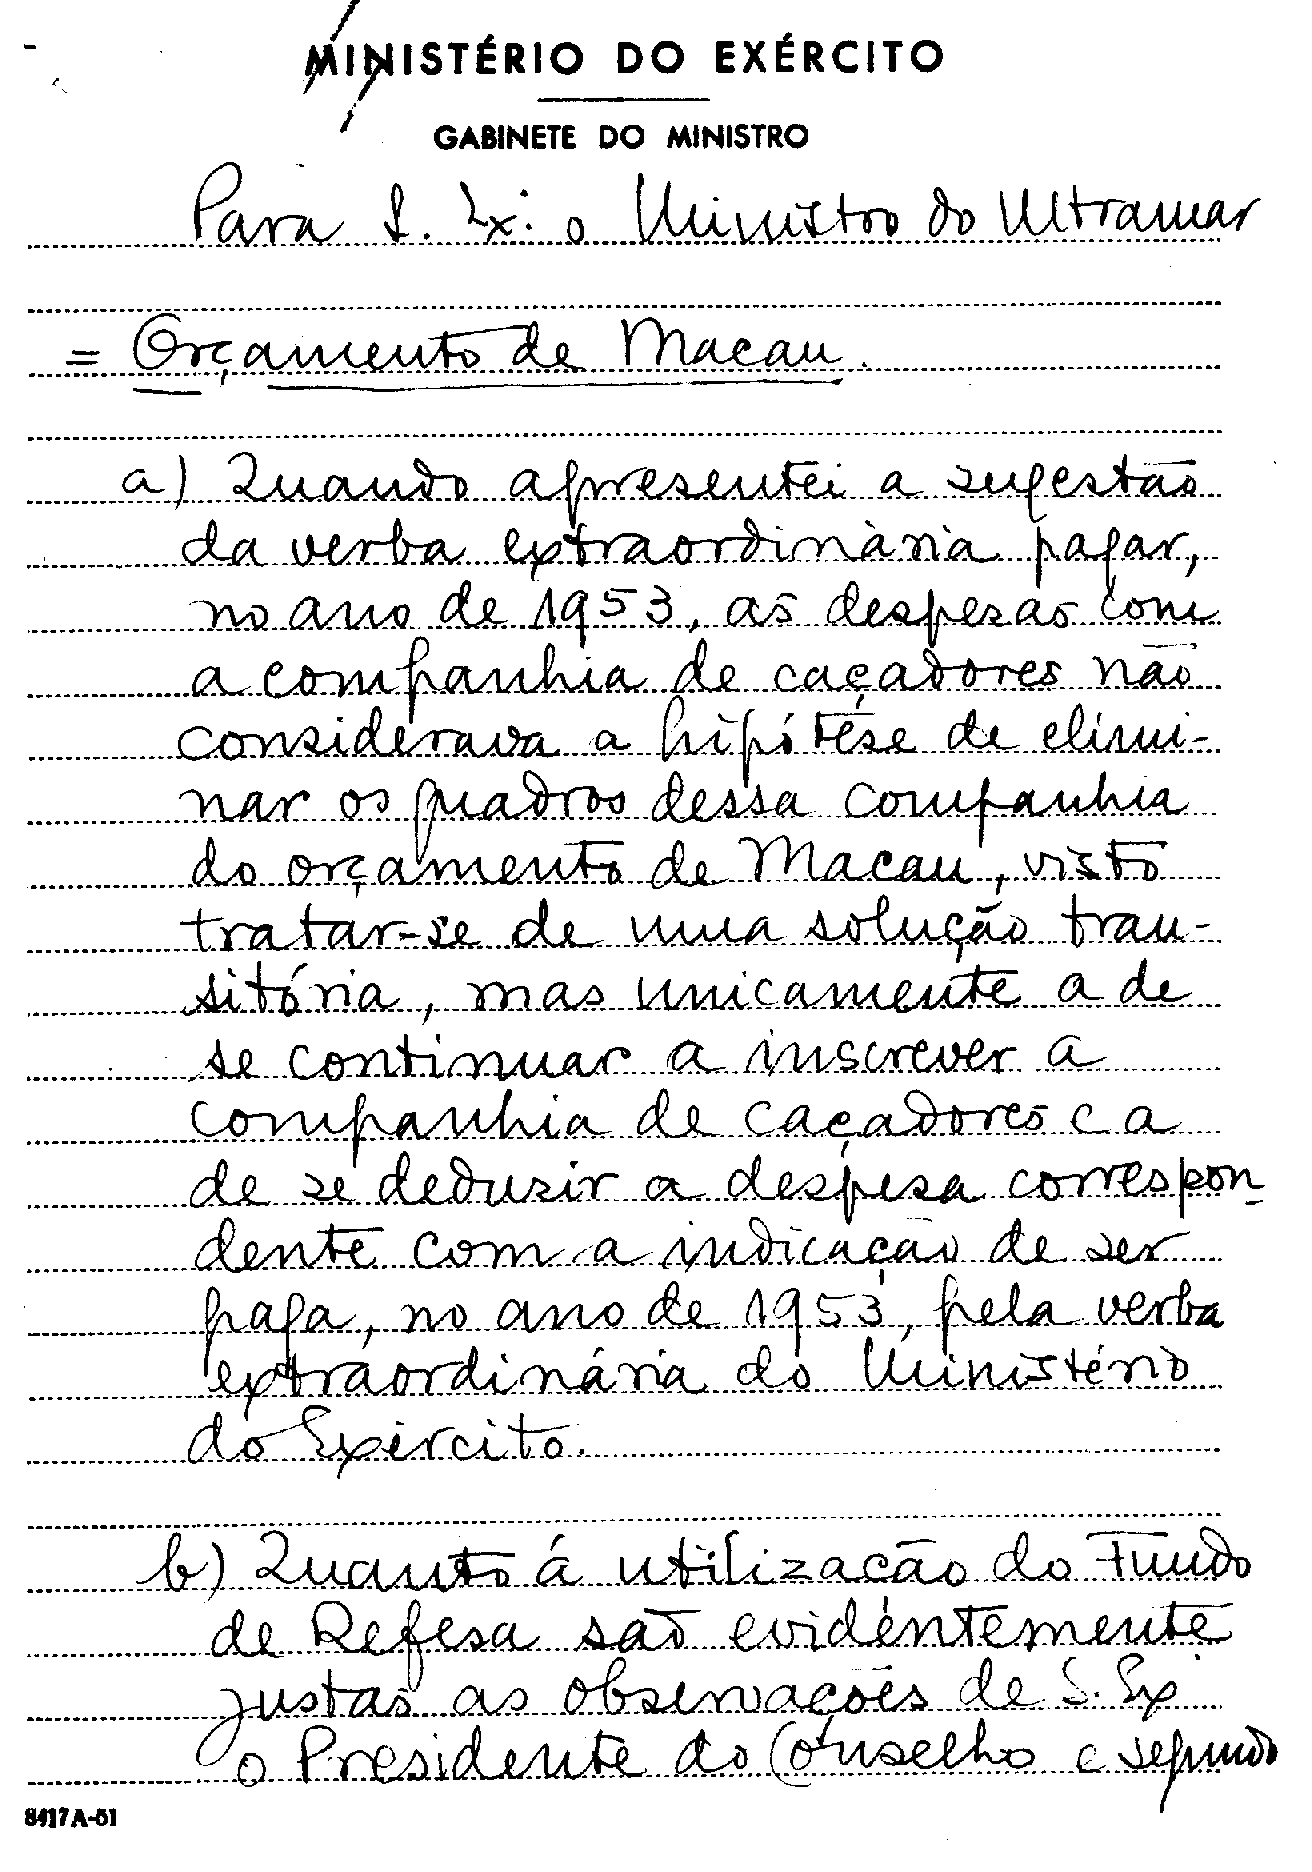 MINISTÉRIO DO EXÉRCITO
GABINETE DO MINISTRO
Para S. Ex.ª o Ministro do Ultramar
= Orçamento de Macau.
a) Quando apresentei a sugestão
da verba extraordinária pagar,
no ano de 1953, as despesas com
a companhia de caçadores não
considerava a hipótese de elimi-
nar os quadros dessa companhia
do orçamento de Macau, visto
tratar-se de uma solução tran-
sitória, mas unicamente a de
se continuar a inscrever a
companhia de caçadores e a
de se deduzir a despesa correspon-
dente com a indicação de ser
paga, no ano de 1953, pela verba
extraordinária do Ministério
do Exército.
b) Quanto á utilização do Fundo
de Defesa são evidentemente
justas as observações de S. Ex.ª
o Presidente do Conselho e segundo
8417A-51